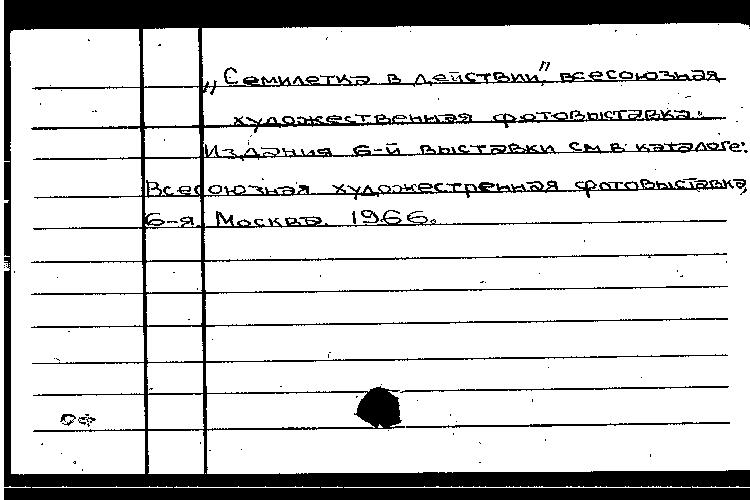 „Семилетка в действии", всесоюзная
художественная фотовыставка.
Издания 6-й выставки см в каталоге:
Всесоюзная художественная фотовыставка,
6-я. Москва. 1966.
ОФ